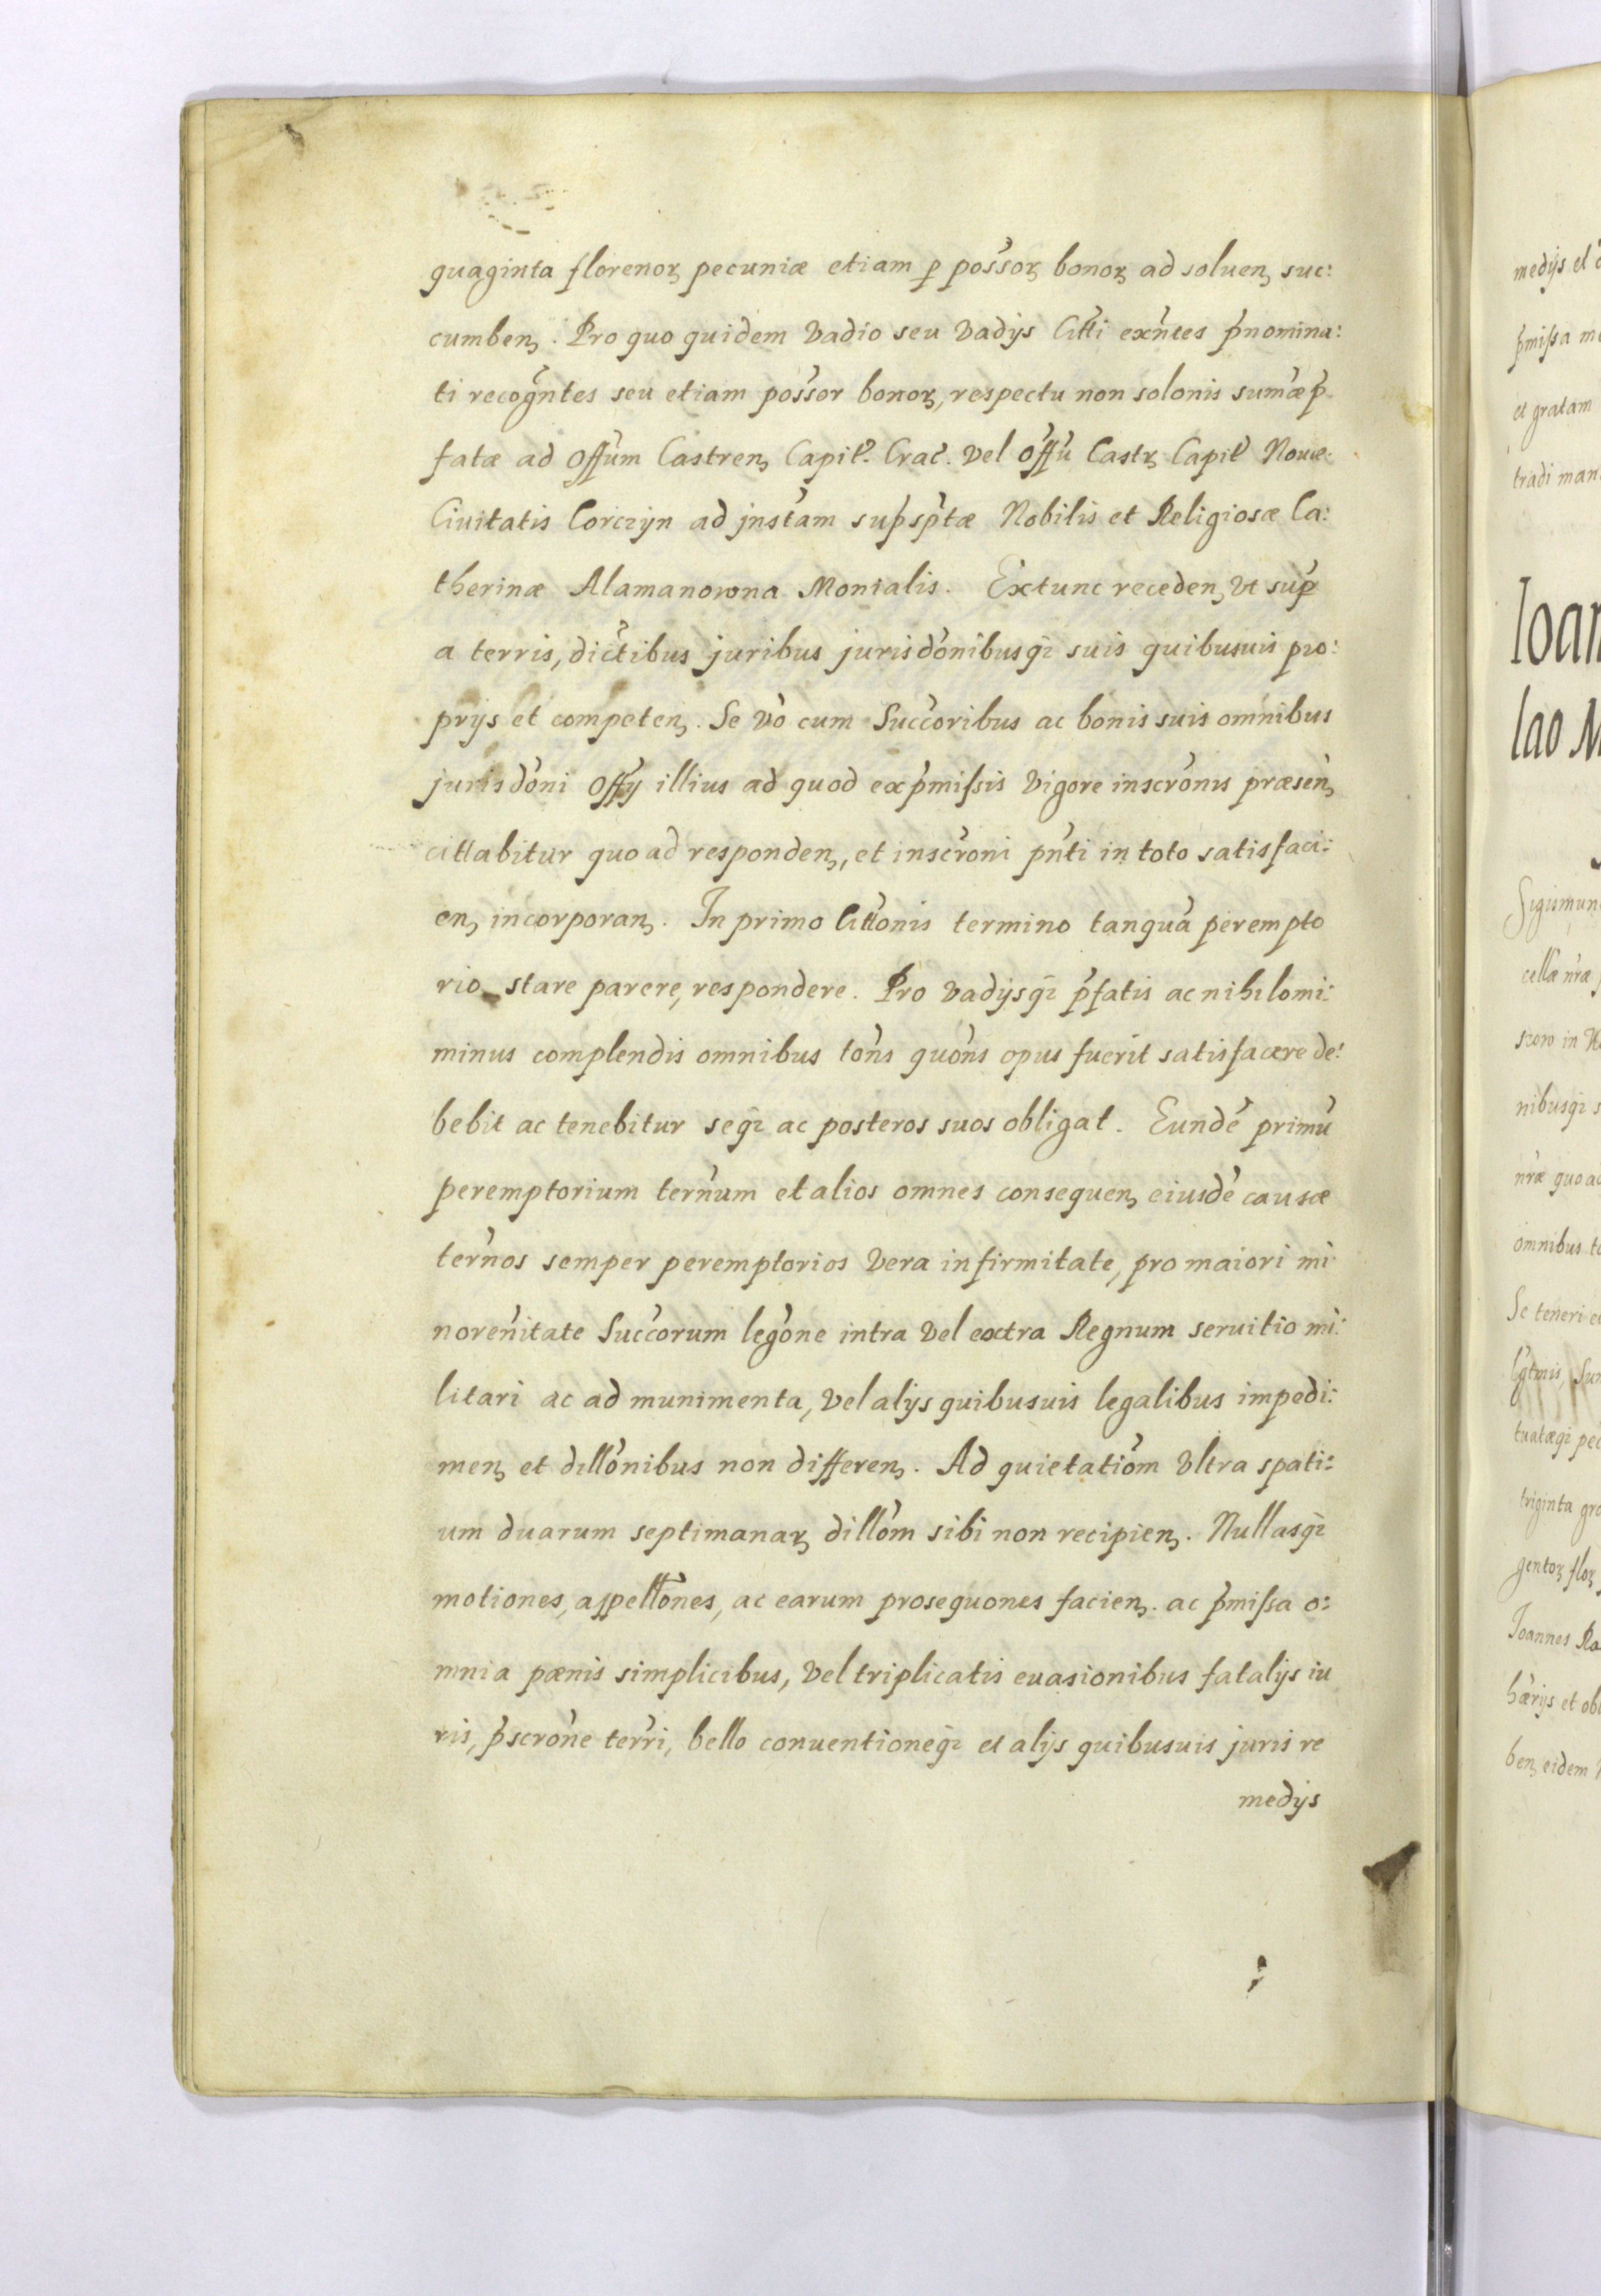 quaginta florenoꝝ pecuniæ etiam ꝑ posšoꝝ bonoꝝ ad soluenʒ suc:
cumbenʒ. Pro quo quidem Vadio seu Vadijs Citti exñtes p̃nomina:
ti recogñtes seu etiam posšor bonoꝝ, respectu non solonis sum̃æ p̃
fatæ ad Offũm Castrenʒ Capit̃. Crac̃. Vel Offũ Castrʒ Capit̃ Nouæ
Ciuitatis Corczyn ad jnstãm sup̃sp̃tæ Nobilis et Religiosæ Ca:
therinæ Alamanowna Monialis. Extunc recedenʒ, Vt sup̃
a terris, dic̃tibus juribus jurisdõnibusqȝ suis quibusuis pro:
prijs et competenʒ. Se Võ cum Succ̃oribus ac bonis suis omnibus
jurisdõni Offy illius ad quod ex p̃missis Vigore inscrõnis præsenʒ
cittabitur quo ad respondenʒ, et inscrõni pñti in toto satisfaci:
enʒ incorporanʒ. In primo Cittõnis termino tanquã perempto
rio stare parere, respondere. Pro Vadijsqȝ p̃fatis ac nihilomi:
minus complendis omnibus tõns quõns opus fuerit satisfacere de:
bebit ac tenebitur seqȝ ac posteros suos obligat. Eundẽ primũ
peremptorium terñum et alios omnes consequenʒ eiusdẽ causæ
terños semper peremptorios Vera infirmitate, pro maiori mi
noreñitate Succ̃orum legõne intra Vel extra Regnum seruitio mi:
litari ac ad munimenta, Vel alijs quibusuis legalibus impedi:
menʒ et dillõnibus non differenʒ. Ad quietatiõm Vltra spati:
um duarum septimanaꝝ dillõm sibi non recipienʒ. Nullasqȝ
motiones, appellõnes, ac earum prosequones facienʒ. ac p̃missa o:
mnia pænis simplicibus, Vel triplicatis euasionibus fatalijs iu
ris, p̃scrõne terr̃i, bello conuentioneqȝ et alijs quibusuis juris re
medijs
medijs et
p̃missa
et gratam
tradi man
Ioan
lao M
Sigismun
cellæ nr̃æ
nibusqȝ s
nr̃æ quo ad
omnibus
Se teneri
triginta gro
gentoꝝ floꝝ
Ioannes Ra
hærijs et obl
benʒ eidem